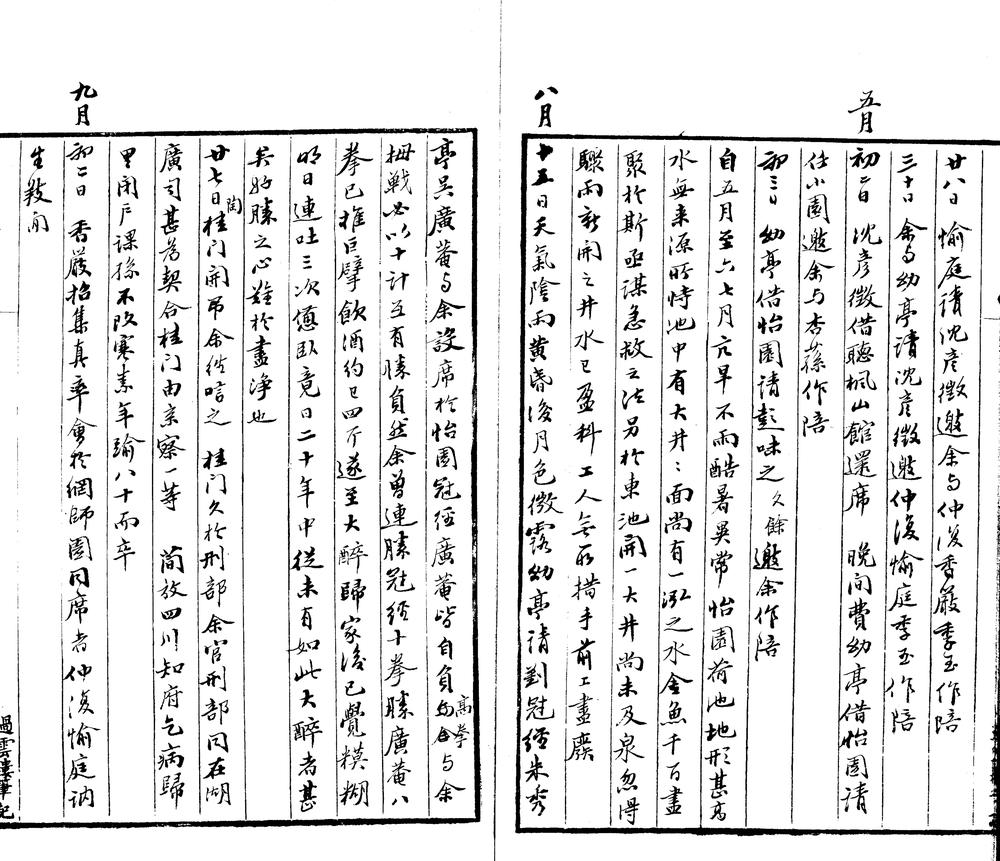 五月
廿八日 愉庭請沈彥徵邀余与仲復香嚴季玉作陪
三十日 余与幼亭請沈彥徵邀仲復愉庭季玉作陪
初二日 沈彥徵借聽楓山館還席 晚間費幼亭借怡園請
任小園邀余与杏蓀作陪
初三日 幼亭借怡園請彭味之久餘邀余作陪
自五月至六七月亢旱不雨酷暑異常 怡園荷池地形甚高
水無来源所恃池中有大井:面尚有一泓之水金魚千百盡
聚於斯亟謀急救之法另於東池開一大井尚未及泉忽得
驟雨新開之井水已盈科工人無所措手前工盡廢
八月
十五日天氣陰雨黄昏後月色微露幼亭請劉冠經朱秀
亭吳廣菴与余設席於怡園冠經廣菴皆自負高拳与余
拇戰必以十計互有勝負然余曾連勝冠經十拳勝廣菴八
拳已推巨擘飲酒約已四斤遂至大醉歸家後已覺糢糊
明日連吐三次憊臥竟日二十年中從未有如此大醉者甚
矣好勝之心難於盡淨也
廿七日陶桂门開弔余往唁之 桂门久於刑部余官刑部同在湖
廣司甚為契合桂门由京察一等 簡放四川知府乞病歸
里閉户課孫不改寒素年踰八十而卒
九月
初二日 香嚴招集真率會於網師園同席者仲復愉庭訥
生穀甫
過雲樓筆記